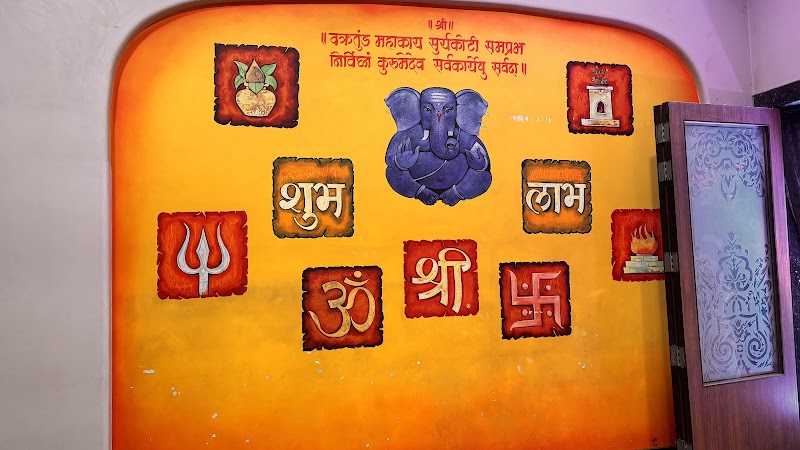 ॥ श्री ॥
॥ वक्रतुंड महाकाय सुर्यकोटी समप्रभ
निर्विघ्नं कुरुमेदेव सर्वकार्येषु सर्वदा ॥
शुभ
लाभ
ॐ
श्री